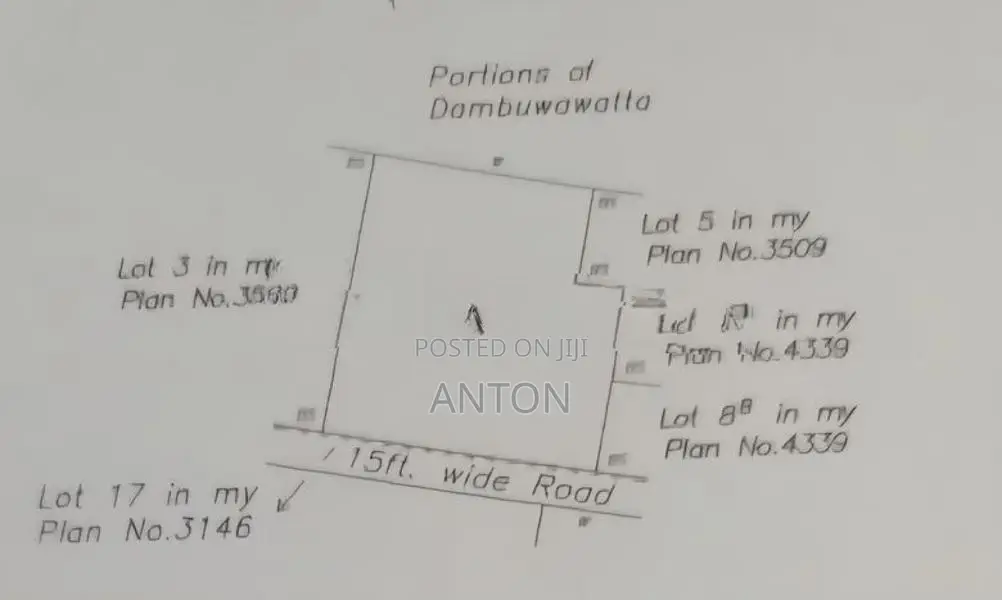 Portions of
Dambuwawatta
Lot 5 in my
Plan No.3509
Lot 3 in my
Plan No.
Lot in my
Plan No.4339
A
POSTED ON JIJI
ANTON
Lot 8B in my
Plan No.4339
15ft. wide Road
Lot 17 in my
Plan No.3146